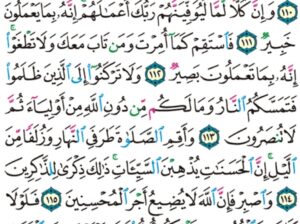 ١١٠ وَإِنَّ كُلًّا لَّمَّا لَيُوَفِّيَنَّهُمْ رَبُّكَ أَعْمَٰلَهُمْ إِنَّهُۥ بِمَا يَعْمَلُونَ
خَبِيرٌ ١١١ فَٱسْتَقِمْ كَمَآ أُمِرْتَ وَمَن تَابَ مَعَكَ وَلَا تَطْغَوْا۟ ۚ
إِنَّهُۥ بِمَا تَعْمَلُونَ بَصِيرٌ ١١٢ وَلَا تَرْكَنُوٓا۟ إِلَى ٱلَّذِينَ ظَلَمُوا۟
فَتَمَسَّكُمُ ٱلنَّارُ وَمَا لَكُم مِّن دُونِ ٱللَّهِ مِنْ أَوْلِيَآءَ ثُمَّ
لَا تُنصَرُونَ ١١٣ وَأَقِمِ ٱلصَّلَوٰةَ طَرَفَىِ ٱلنَّهَارِ وَزُلَفًا مِّنَ
ٱلَّيْلِ ۚ إِنَّ ٱلْحَسَنَٰتِ يُذْهِبْنَ ٱلسَّيِّـَٔاتِ ۚ ذَٰلِكَ ذِكْرَىٰ لِلذَّٰكِرِينَ
١١٤ وَٱصْبِرْ فَإِنَّ ٱللَّهَ لَا يُضِيعُ أَجْرَ ٱلْمُحْسِنِينَ ١١٥ فَلَوْلَا